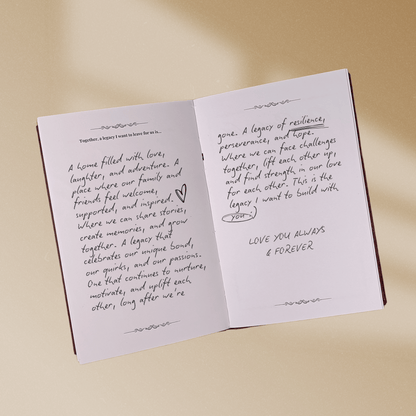 Together, a legacy I want to leave for us is...
A home filled with love,
laughter, and adventure. A
place where our family and
friends feel welcome,
supported, and inspired.
Where we can share stories,
create memories, and grow
together. A legacy that
celebrates our unique bond,
our quirks, and our passions.
One that continues to nurture,
motivate, and uplift each
other, long after we're
gone. A legacy of resilience,
perseverance, and hope.
Where we can face challenges
together, lift each other up,
and find strength in our love
for each other. This is the
legacy I want to build with
you.
LOVE YOU ALWAYS
& FOREVER